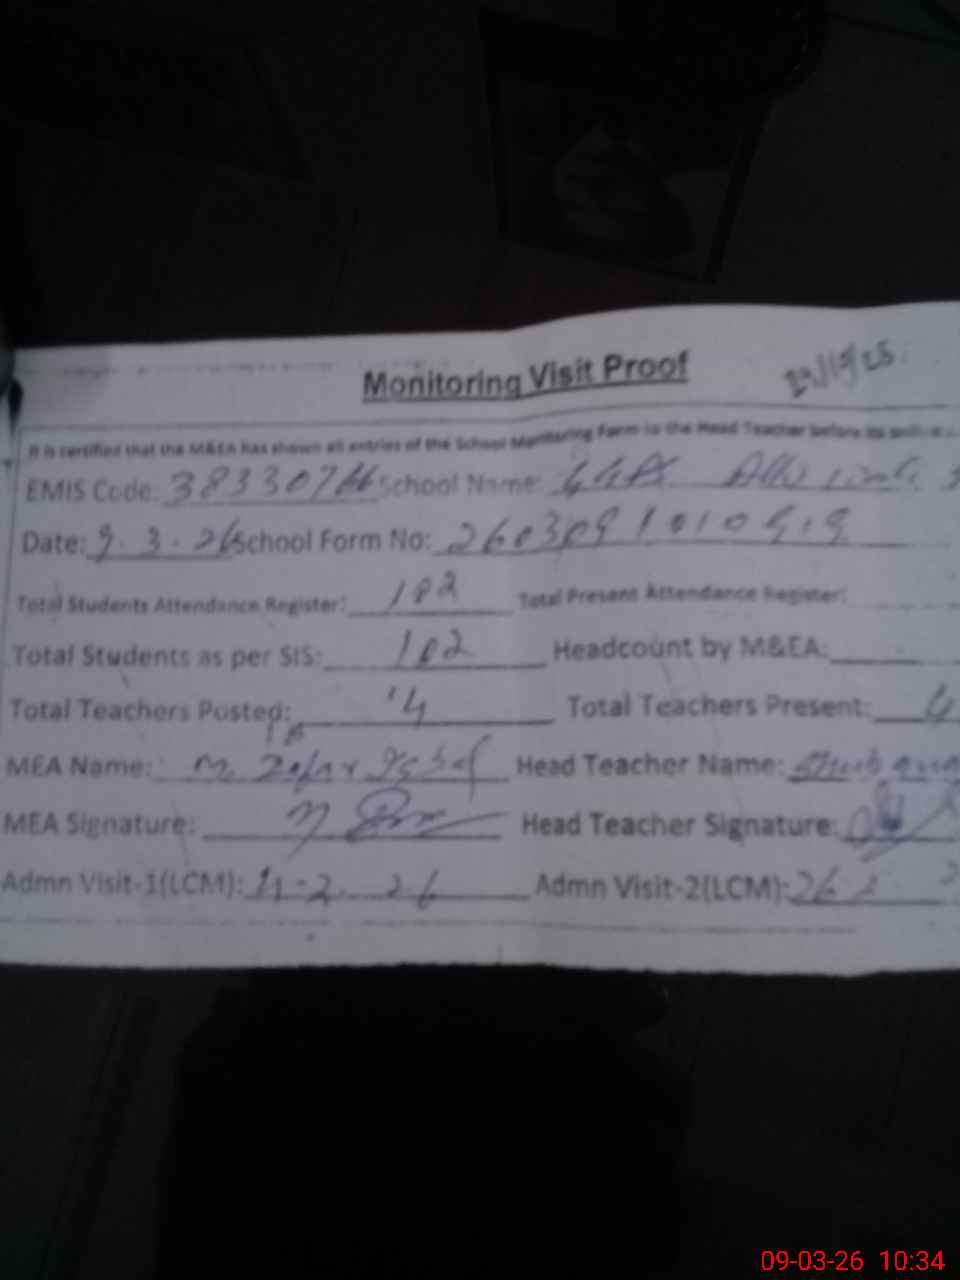 Monitoring Visit Proof
It is certified that the M&EA has shown all entries of the School Monitoring Form to the Head Teacher before its
EMIS Code: 38330766 School Name:
Date: 9.3.26 School Form No:
Total Students Attendance Register: 102 Total Present Attendance Register:
Total Students as per SIS: 102 Headcount by M&EA:
Total Teachers Posted: 4 Total Teachers Present: 4
MEA Name: M. Zafar Iqbal Head Teacher Name:
MEA Signature: Head Teacher Signature:
Admn Visit-1(LCM): 11-2.26 Admn Visit-2(LCM): 26 2
09-03-26 10:34